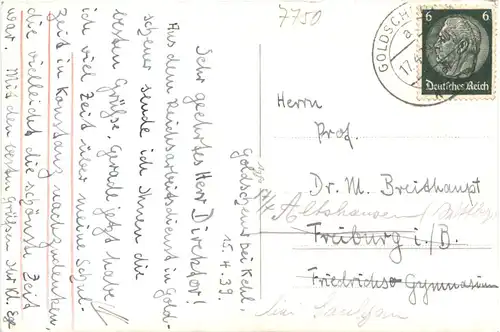 7750
Goldscheuer bei Kehl,
15.4.39.
Sehr geehrtes Herr Direktor!
Aus dem Reichsarbeitsdienst in Gold-
scheuer sende ich Ihnen die
besten Grüße. Gerade jetzt habe
ich viel Zeit über meine Schul-
zeit in Konstanz nachzudenken,
die vielleicht die schönste Zeit
war. Mit den besten Grüssen Ihr Kl. Ege
GOLDSCH
17.4.
6 6
Deutsches Reich
Herrn
Prof.
Dr. M. Breithaupt
Altshausen
Freiburg i./B.
Friedrichs-Gymnasium
Saulgau